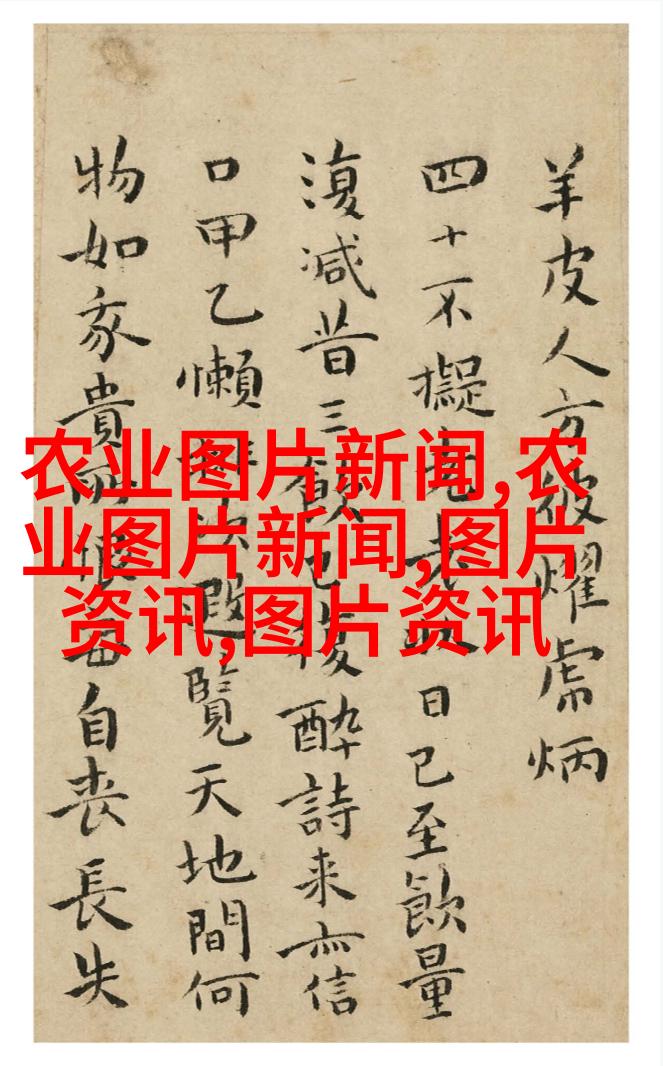 农业图片新闻,农
业图片新闻,图片
资讯,图片资讯
羊皮人方被耀虎炳
四十不擬老日已至飲量
復減昔三醉詩来亦信
口甲乙懶次遐覽天地間何
物如豕貴自丧長失